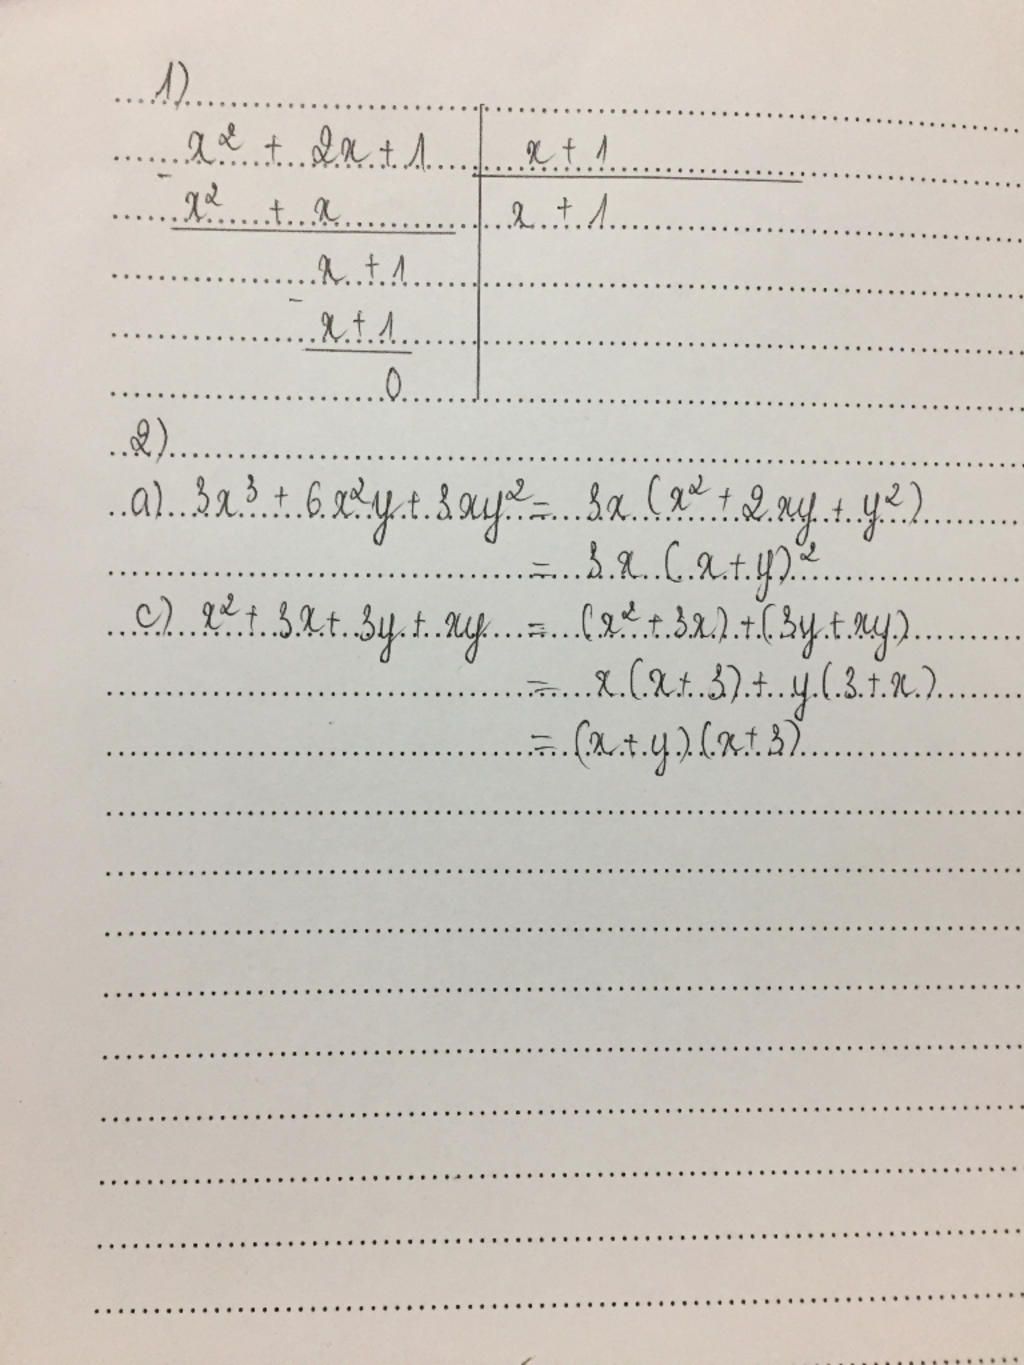 1)
x² + 2x + 1 x + 1
- x² + x x + 1
x + 1
- x + 1
0
2)
a) 3x³ + 6x²y + 3xy² = 3x (x² + 2xy + y²)
= 3x (x + y)²
c) x² + 3x + 3y + xy = (x² + 3x) + (3y + xy)
= x (x + 3) + y (3 + x)
= (x + y) (x + 3)